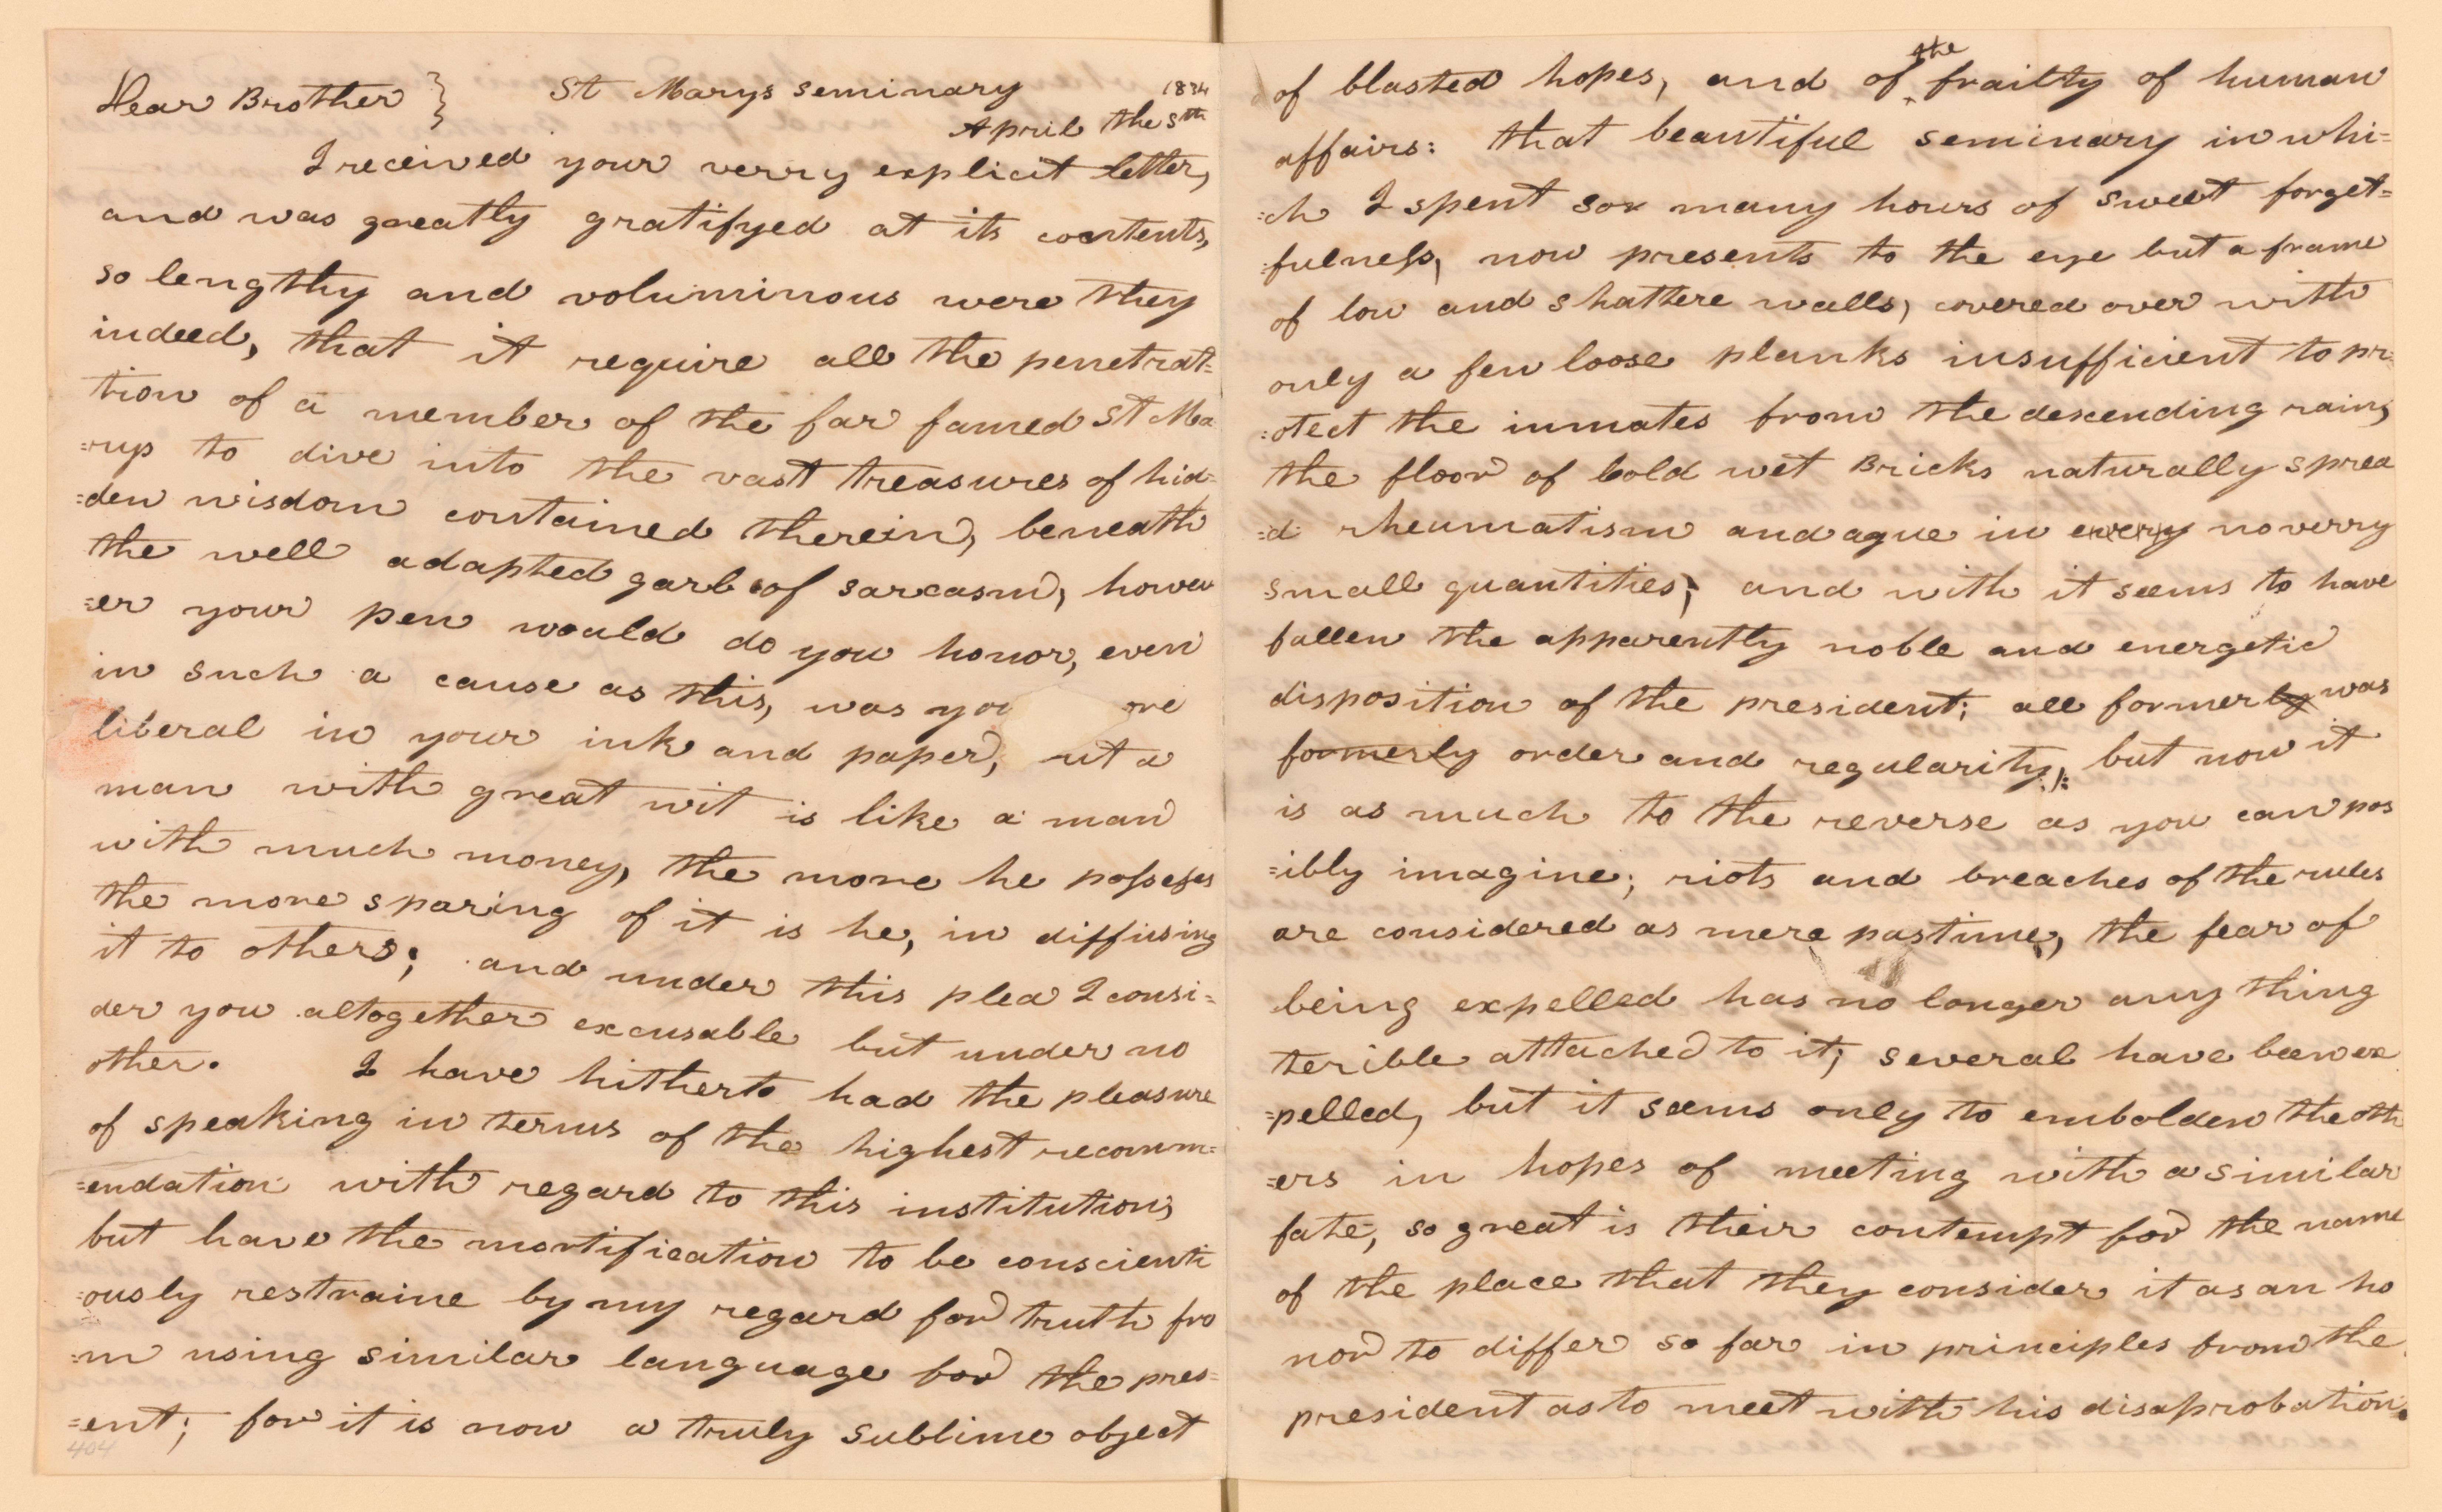 Dear Brother } St Marys seminary 1834
April the 5th
I received your verry explicit letter,
and was greatly gratifyed at its contents,
so lengthy and voluminous were they
indeed, that it require all the penetrat=
tion of a member of the far famed St Ma
=rys to dive into the vast treasures of hid=
=den wisdom contained therein, beneath
the well adapted garb of sarcasm, howev
=er your pen would do you honor, even
in such a cause as this, was you ore
liberal in your ink and paper, ut a
man with great wit is like a man
with much money, the more he possesses
the more sparing of it is he, in diffusing
it to others; and under this plea I consi=
der you altogether excusable but under no
other. I have hitherto had the pleasure
of speaking in terms of the highest recomm=
=endation with regard to this institution,
but have the mortification to be conscienti
=ously restraine by my regard for truth fro
=m using similar language for the pres=
=ent; for it is now a truly sublime object
404
of blasted hopes, and of the frailty of human
affairs: that beautiful seminary in whi=
=ch I spent so many hours of sweet forget=
=fulness, now presents to the eye but a frame
of low and shattere walls, covered over with
only a few loose planks insufficient to pr
=otect the inmates from the descending rain,
the floor of cold wet Bricks naturally sprea
=d rheumatism and ague in every no verry
small quantities; and with it seems to have
fallen the apparently noble and energetic
disposition of the president; all formerly was
formerly order and regularity, but now it
is as much to the reverse as you can pos
=ibly imagine; riots and breaches of the rules
are considered as mere pastime, the fear of
being expelled has no longer any thing
terible attached to it; several have been ex
=pelled, but it seems only to embolden the oth
=ers in hopes of meeting with a similar
fate, so great is their contempt for the name
of the place that they consider it as an ho
nor to differ so far in principles from the
president as to meet with his disaprobation.